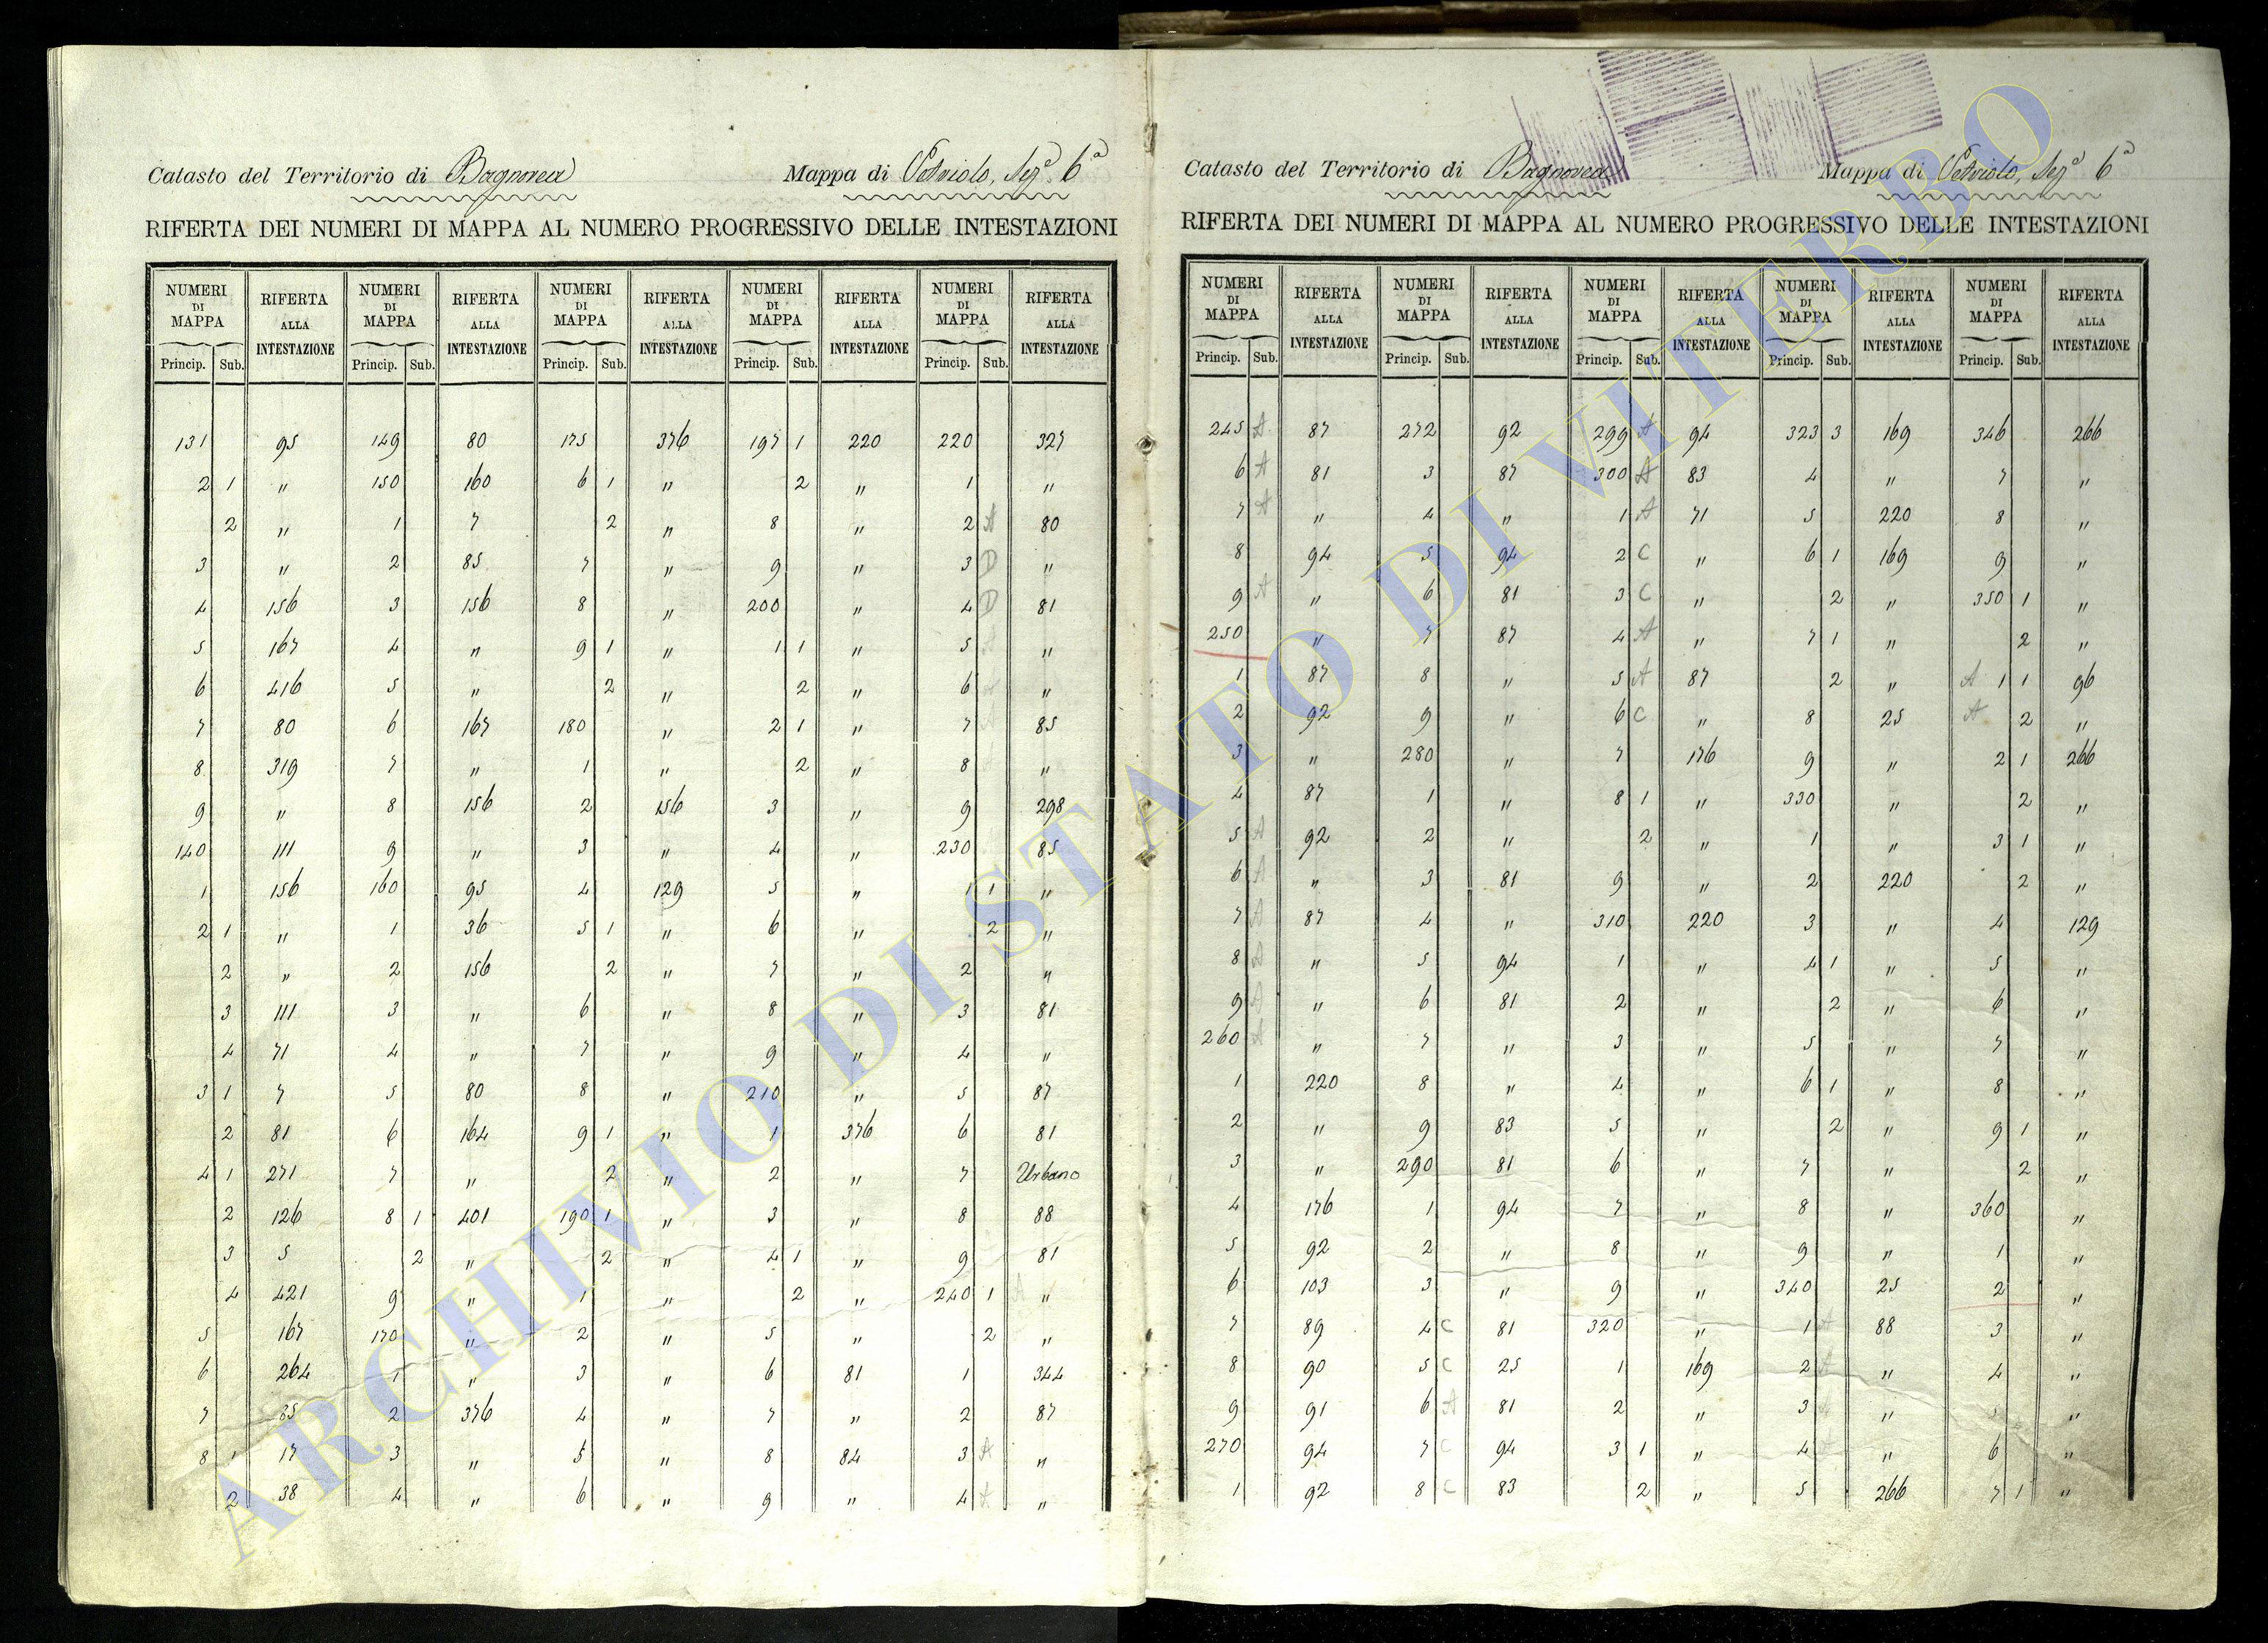 Catasto del Territorio di Bagnorea Mappa di Vetriolo, Sez.ª 6ª
RIFERTA DEI NUMERI DI MAPPA AL NUMERO PROGRESSIVO DELLE INTESTAZIONI
NUMERI DI MAPPA RIFERTA ALLA INTESTAZIONE NUMERI DI MAPPA RIFERTA ALLA INTESTAZIONE NUMERI DI MAPPA RIFERTA ALLA INTESTAZIONE NUMERI DI MAPPA RIFERTA ALLA INTESTAZIONE NUMERI DI MAPPA RIFERTA ALLA INTESTAZIONE
Princip. Sub. Princip. Sub. Princip. Sub. Princip. Sub. Princip. Sub.
131 95 149 80 175 376 197 1 220 220 327
2 1 " 150 160 6 1 " 2 " 1 "
2 " 1 7 2 " 8 " 2 A 80
3 " 2 85 7 " 9 " 3 D "
4 156 3 156 8 " 200 " 4 D 81
5 167 4 " 9 1 " 1 1 " 5 A "
6 416 5 " 2 " 2 " 6 A "
7 80 6 167 180 " 2 1 " 7 A 85
8 319 7 " 1 " 2 " 8 "
9 " 8 156 2 156 3 " 9 298
140 111 9 " 3 " 4 " 230 85
1 156 160 95 4 129 5 " 1 1 "
2 1 " 1 36 5 1 " 6 " 2 "
2 " 2 156 2 " 7 " 2 "
3 111 3 " 6 " 8 " 3 81
4 71 4 " 7 " 9 " 4 "
3 1 7 5 80 8 " 210 " 5 87
2 81 6 164 9 1 " 1 376 6 81
4 1 271 7 " 2 " 2 " 7 Urbano
2 126 8 1 401 190 1 " 3 " 8 88
3 5 2 " 2 " 4 1 " 9 81
4 421 9 " 1 " 2 " 240 1 A "
5 167 170 " 2 " 5 " 2 "
6 264 1 " 3 " 6 81 1 344
7 85 2 376 4 " 7 " 2 87
8 1 17 3 " 5 " 8 84 3 A "
2 38 4 " 6 " 9 " 4 A "
Catasto del Territorio di Bagnorea Mappa di Vetriolo, Sez.ª 6ª
RIFERTA DEI NUMERI DI MAPPA AL NUMERO PROGRESSIVO DELLE INTESTAZIONI
NUMERI DI MAPPA RIFERTA ALLA INTESTAZIONE NUMERI DI MAPPA RIFERTA ALLA INTESTAZIONE NUMERI DI MAPPA RIFERTA ALLA INTESTAZIONE NUMERI DI MAPPA RIFERTA ALLA INTESTAZIONE NUMERI DI MAPPA RIFERTA ALLA INTESTAZIONE
Princip. Sub. Princip. Sub. Princip. Sub. Princip. Sub. Princip. Sub.
245 A 87 272 92 299 A 94 323 3 169 346 266
6 A 81 3 87 300 A 83 4 " 7 "
7 A " 4 " 1 A 71 5 220 8 "
8 94 5 94 2 C " 6 1 169 9 "
9 A " 6 81 3 C " 2 " 350 1 "
250 " 7 87 4 A " 7 1 " 2 "
1 87 8 " 5 A 87 2 " A 1 1 96
2 92 9 " 6 C " 8 25 A 2 "
3 " 280 " 7 176 9 " 2 1 266
4 87 1 " 8 1 " 330 " 2 "
5 A 92 2 " 2 " 1 " 3 1 "
6 A " 3 81 9 " 2 220 2 "
7 A 87 4 " 310 220 3 " 4 129
8 A " 5 94 1 " 4 1 " 5 "
9 A " 6 81 2 " 2 " 6 "
260 A " 7 " 3 " 5 " 7 "
1 220 8 " 4 " 6 1 " 8 "
2 " 9 83 5 " 2 " 9 1 "
3 " 290 81 6 " 7 " 2 "
4 176 1 94 7 " 8 " 360 "
5 92 2 " 8 " 9 " 1 "
6 103 3 " 9 " 340 25 2 "
7 89 4 C 81 320 " 1 A 88 3 "
8 90 5 C 25 1 169 2 A " 4 "
9 91 6 A 81 2 " 3 A " 5 "
270 94 7 C 94 3 1 " 4 A " 6 "
1 92 8 C 83 2 " 5 266 7 1 "
ARCHIVIO DI STATO DI VITERBO